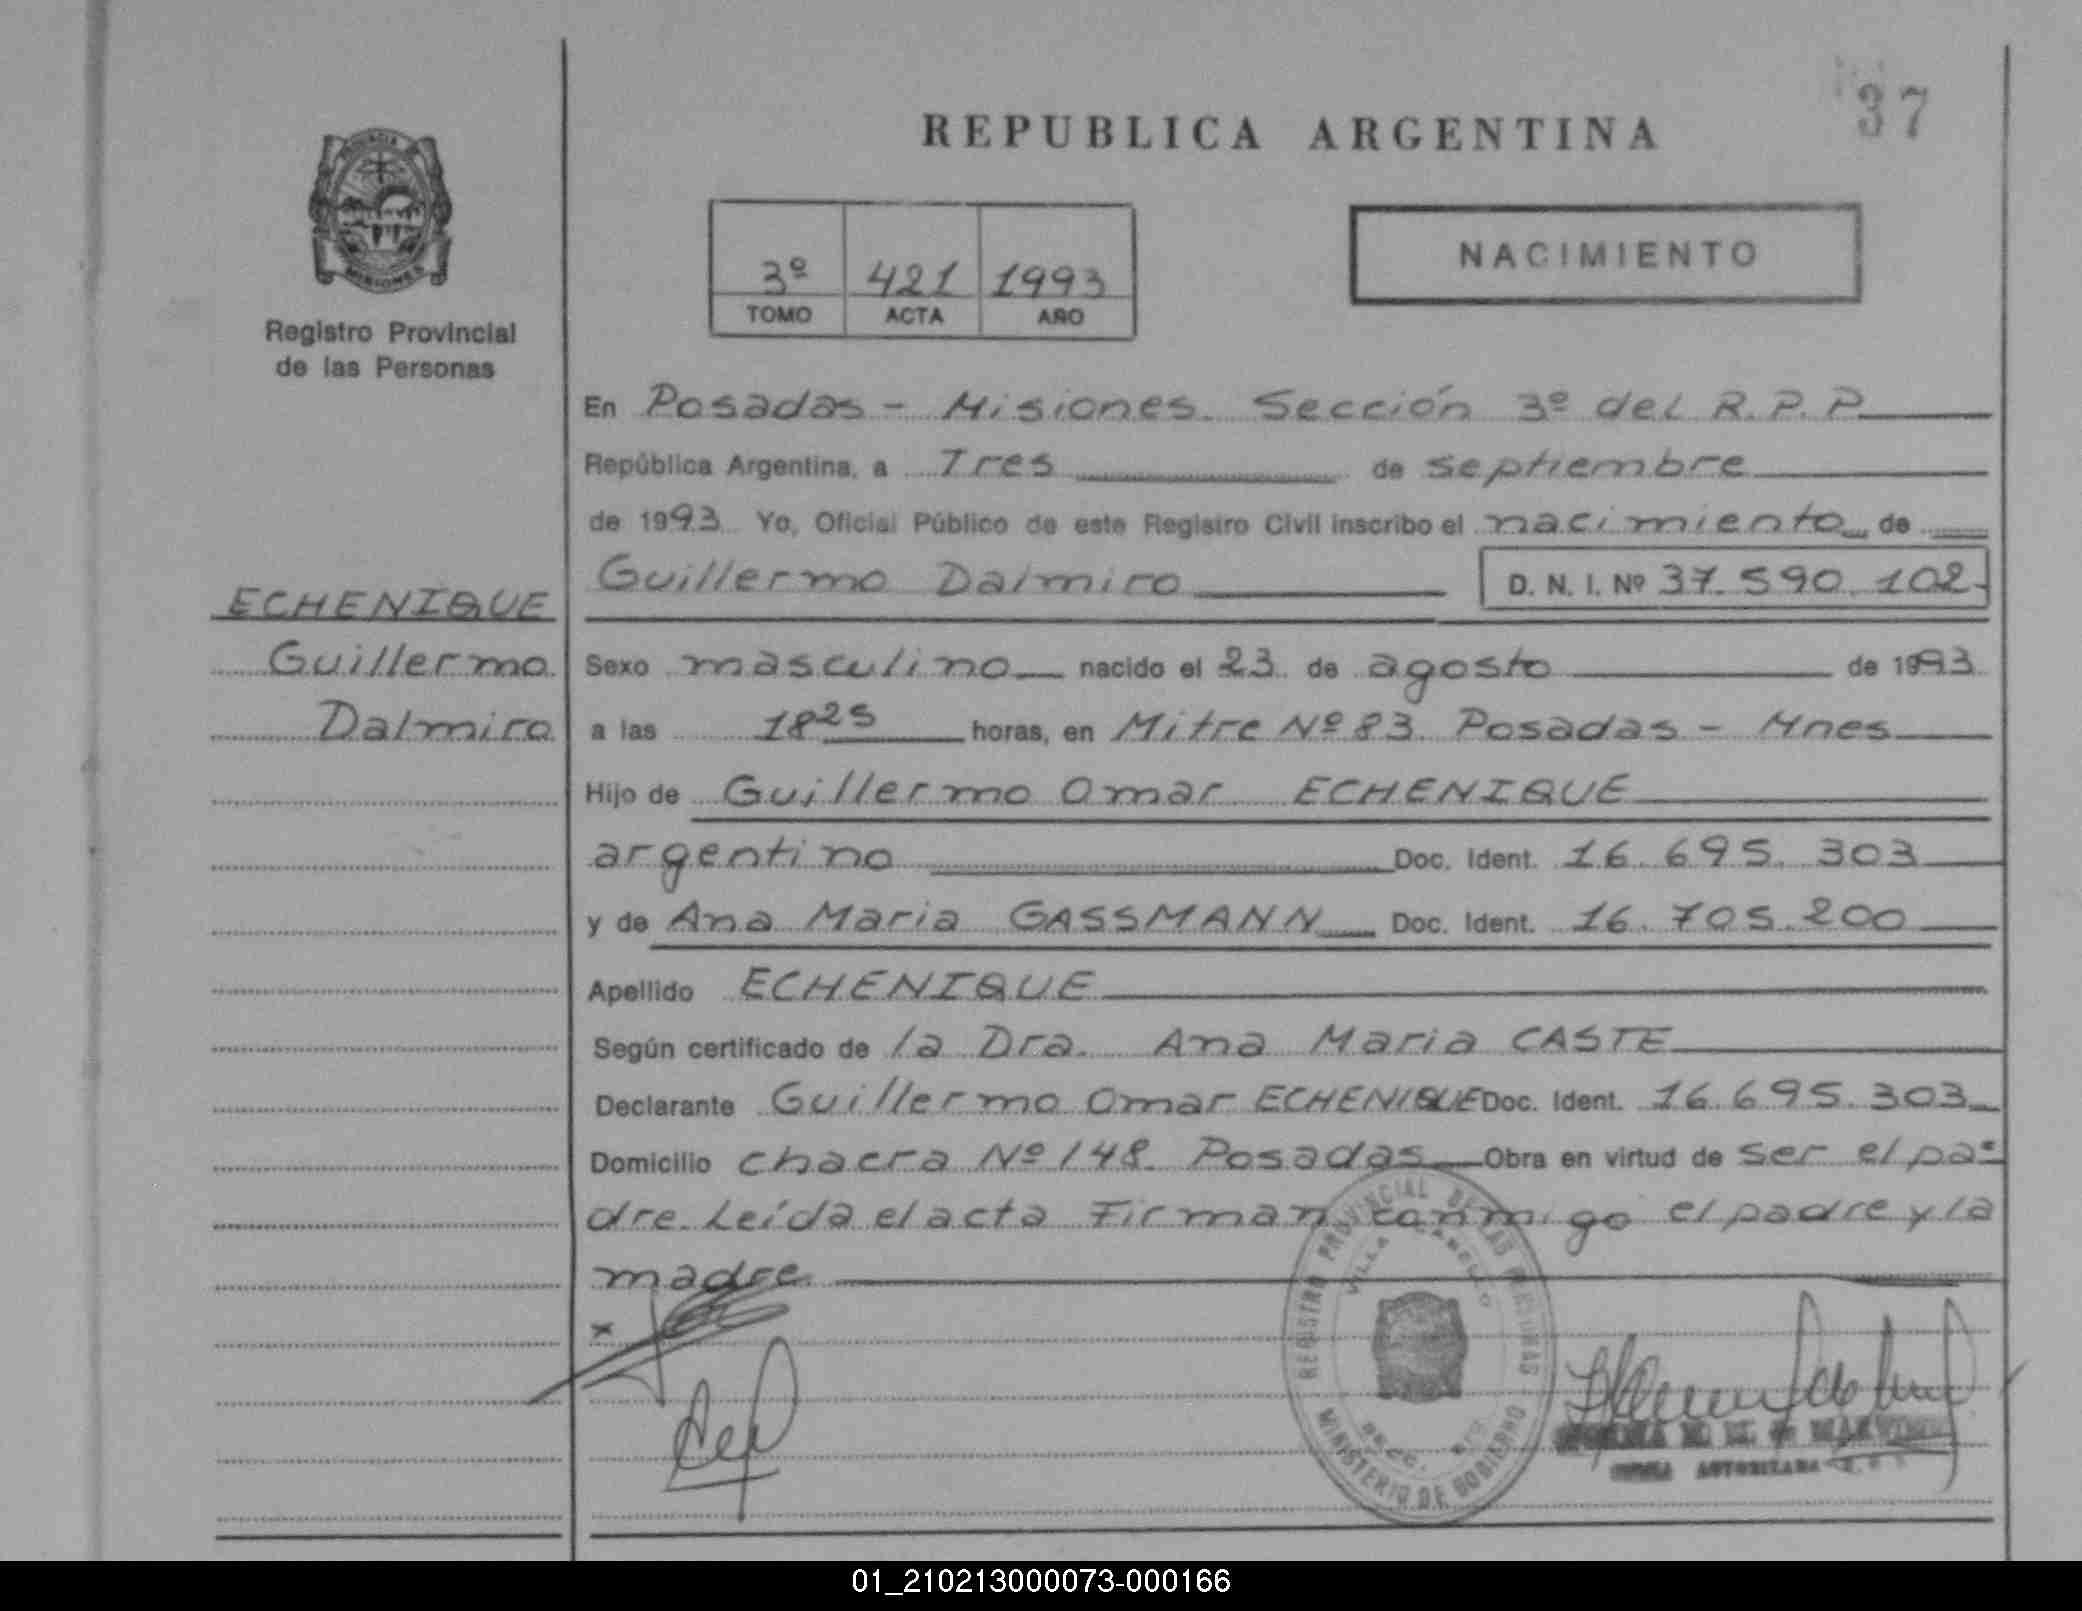 37
REPUBLICA ARGENTINA
3º 421 1993
TOMO ACTA AÑO
NACIMIENTO
MISIONES
Registro Provincial
de las Personas
En Posadas - Misiones. Sección 3º del R.P.P.
República Argentina, a Tres de septiembre
de 1993 Yo, Oficial Público de este Registro Civil inscribo el nacimiento de
Guillermo Dalmiro D. N. I. Nº 37.590.102-
ECHENIQUE
Guillermo
Dalmiro
Sexo masculino nacido el 23 de agosto de 1993
a las 18 25 horas, en Mitre Nº 83. Posadas - Mnes
Hijo de Guillermo Omar ECHENIQUE
argentino Doc. Ident. 16.695.303
y de Ana Maria GASSMANN Doc. Ident. 16.705.200
Apellido ECHENIQUE
Según certificado de la Dra. Ana Maria CASTE
Declarante Guillermo Omar ECHENIQUE Doc. Ident. 16.695.303
Domicilio chacra Nº 148. Posadas Obra en virtud de ser el pa-
dre. Leída el acta Firman conmigo el padre y la
madre
x
REGISTRO PROVINCIAL DE LAS PERSONAS
MINISTERIO DE GOBIERNO
AUTORIZADA
01_210213000073-000166